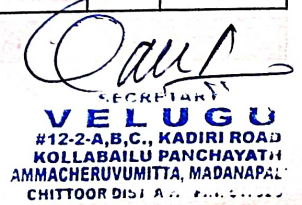 SECRETARY
VELUGU
#12-2-A,B,C., KADIRI ROAD
KOLLABAILU PANCHAYATH
AMMACHERUVUMITTA, MADANAPAL
CHITTOOR DIST A